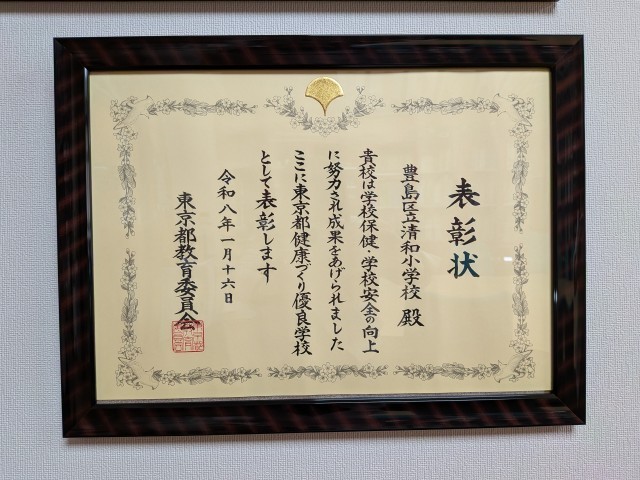 表彰状
豊島区立清和小学校 殿
貴校は学校保健・学校安全の向上
に努力され成果をあげられました
ここに東京都健康づくり優良学校
として表彰します
令和八年一月十六日
東京都教育委員会